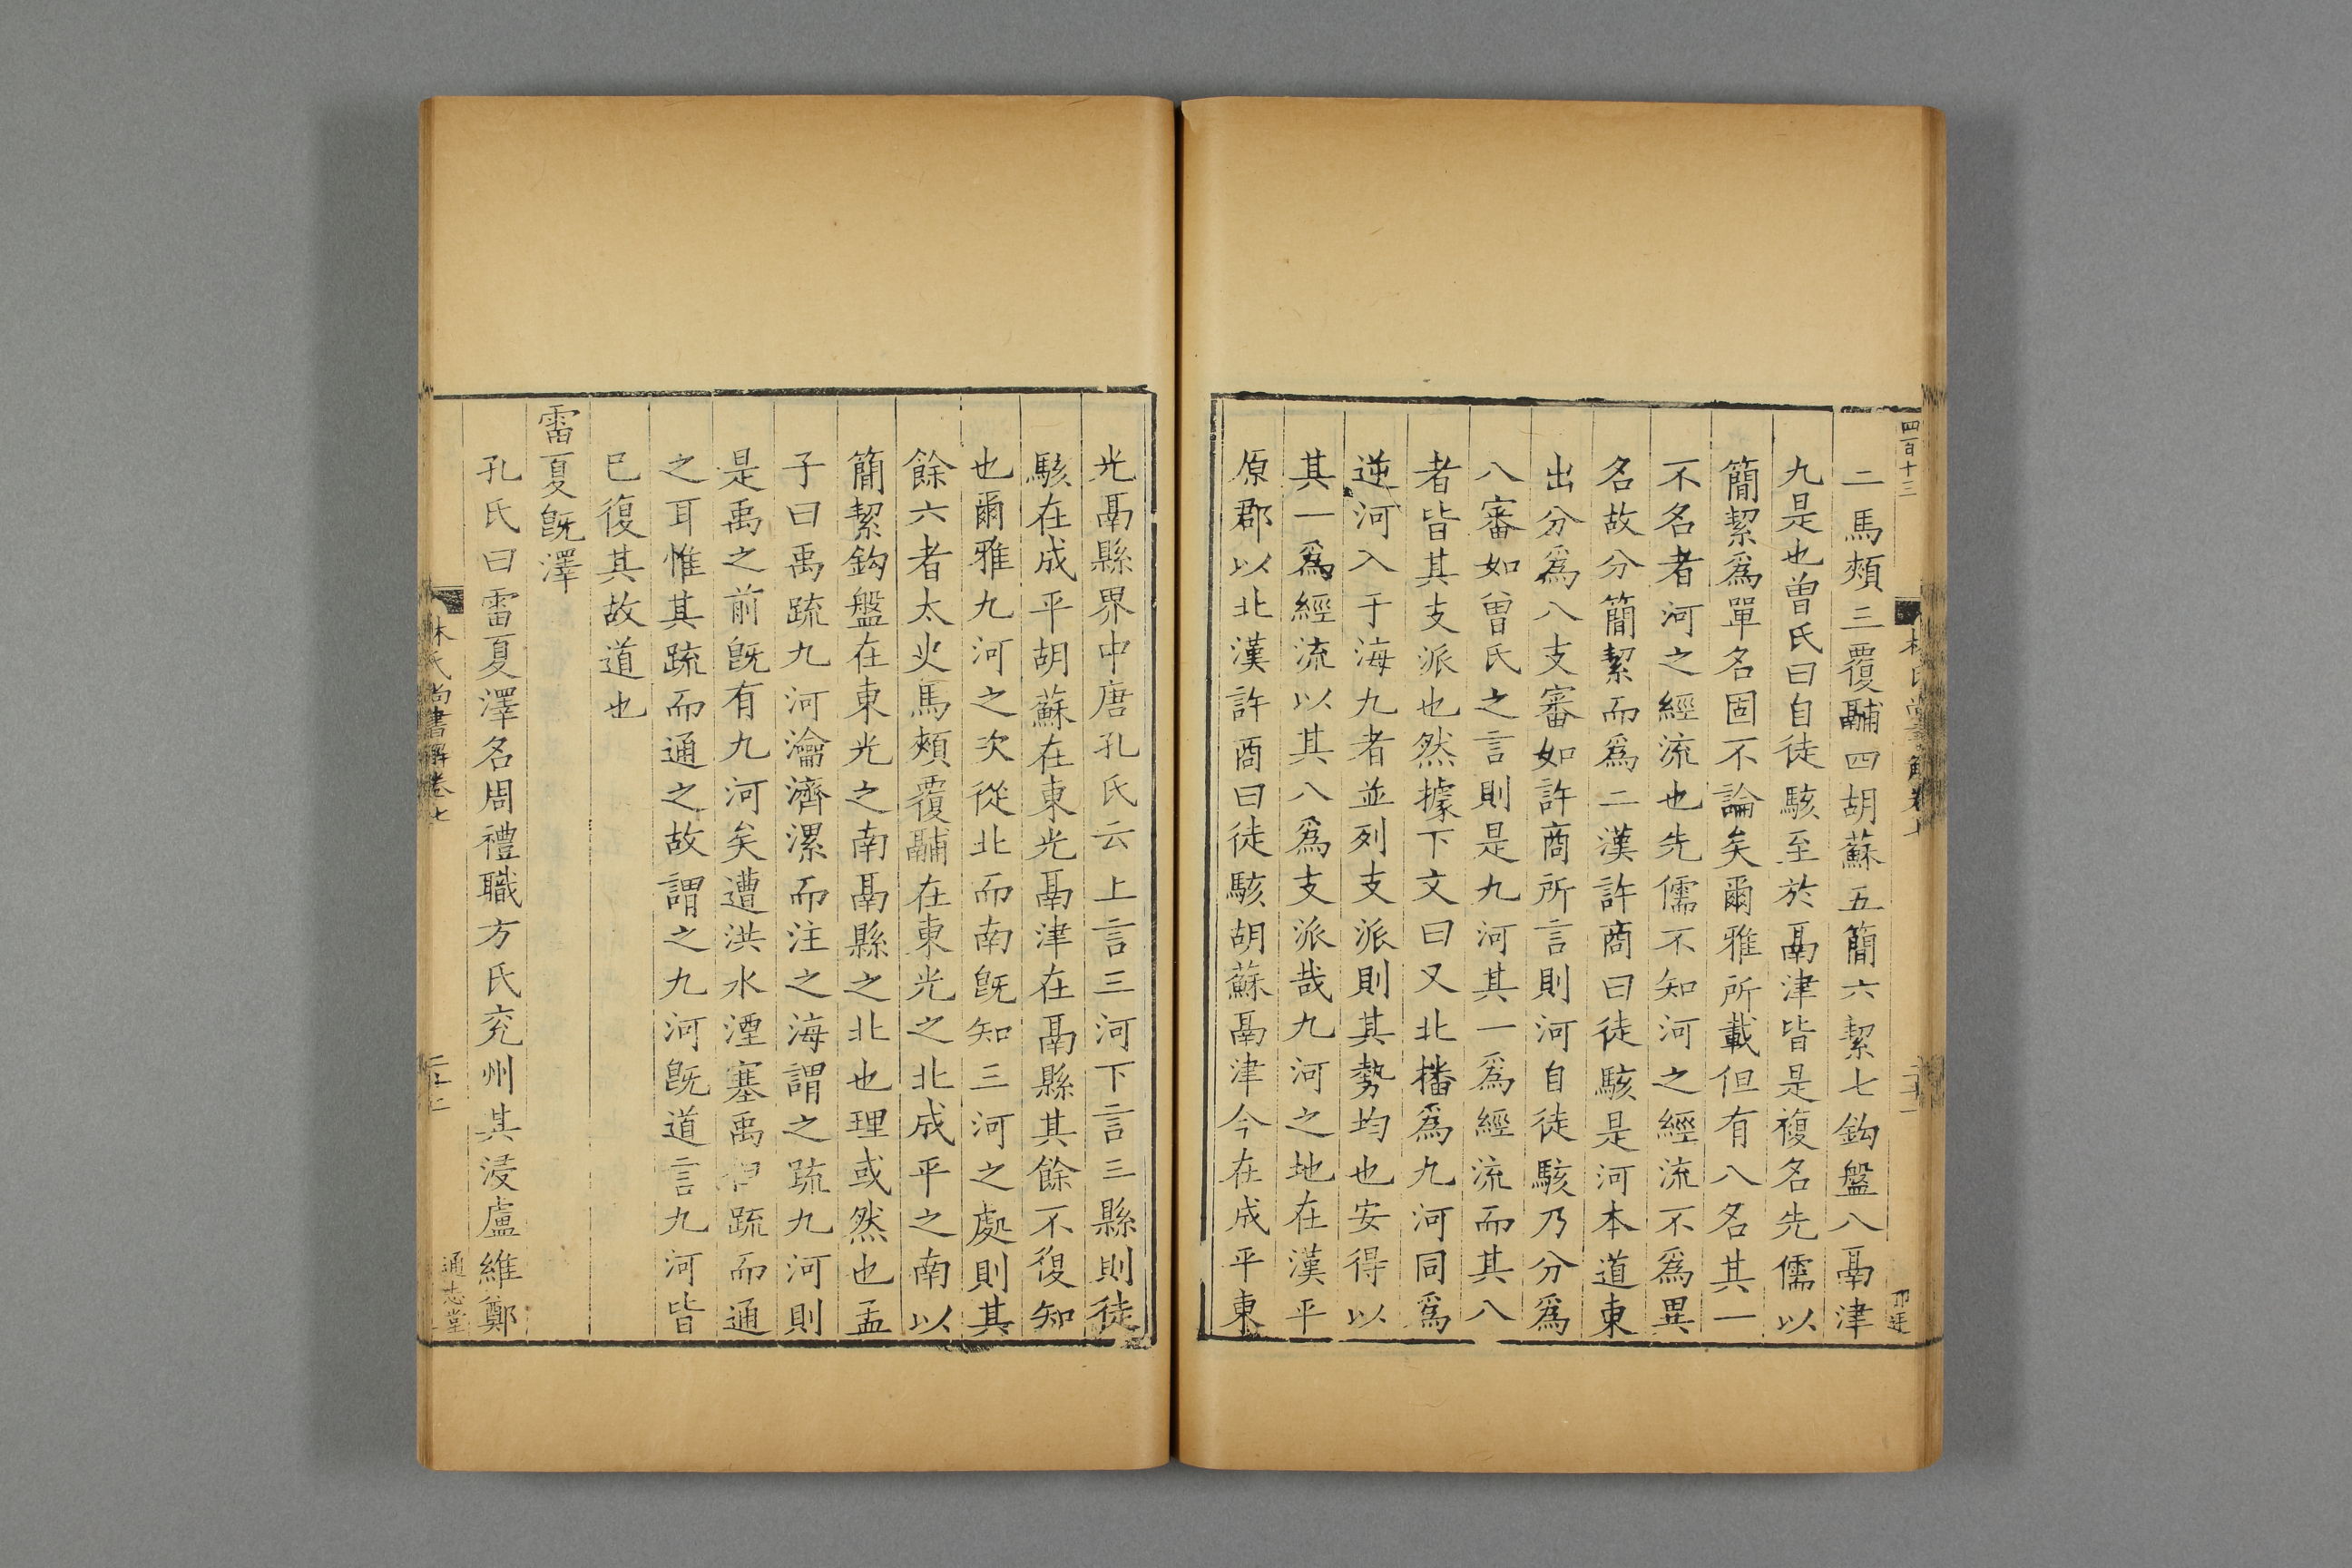 四百十三
二馬頰三覆鬴四胡蘇五簡六絜七鈎盤八鬲津
九是也曾氏曰自徒駭至於鬲津皆是複名先儒以
簡絜爲單名固不論矣爾雅所載但有八名其一
不名者河之經流也先儒不知河之經流不爲異
名故分簡絜而爲二漢許商曰徒駭是河本道東
出分爲八支審如許商所言則河自徒駭乃分爲
八審如曾氏之言則是九河其一爲經流而其八
者皆其支派也然據下文曰又北播爲九河同爲
逆河入于海九者並列支派則其勢均也安得以
其一爲經流以其八爲支派哉九河之地在漢平
原郡以北漢許商曰徒駭胡蘇鬲津今在成平東
光鬲縣界中唐孔氏云上言三河下言三縣則徒
駭在成平胡蘇在東光鬲津在鬲縣其餘不復知
也爾雅九河之次從北而南旣知三河之處則其
餘六者太史馬頰覆鬴在東光之北成平之南以
簡絜鈎盤在東光之南鬲縣之北也理或然也孟
子曰禹疏九河瀹濟漯而注之海謂之疏九河則
是禹之前旣有九河矣遭洪水湮塞禹但疏而通
之耳惟其疏而通之故謂之九河旣道言九河皆
已復其故道也
雷夏旣澤
孔氏曰雷夏澤名周禮職方氏兖州其浸盧維鄭
林氏尚書解卷七
通志堂